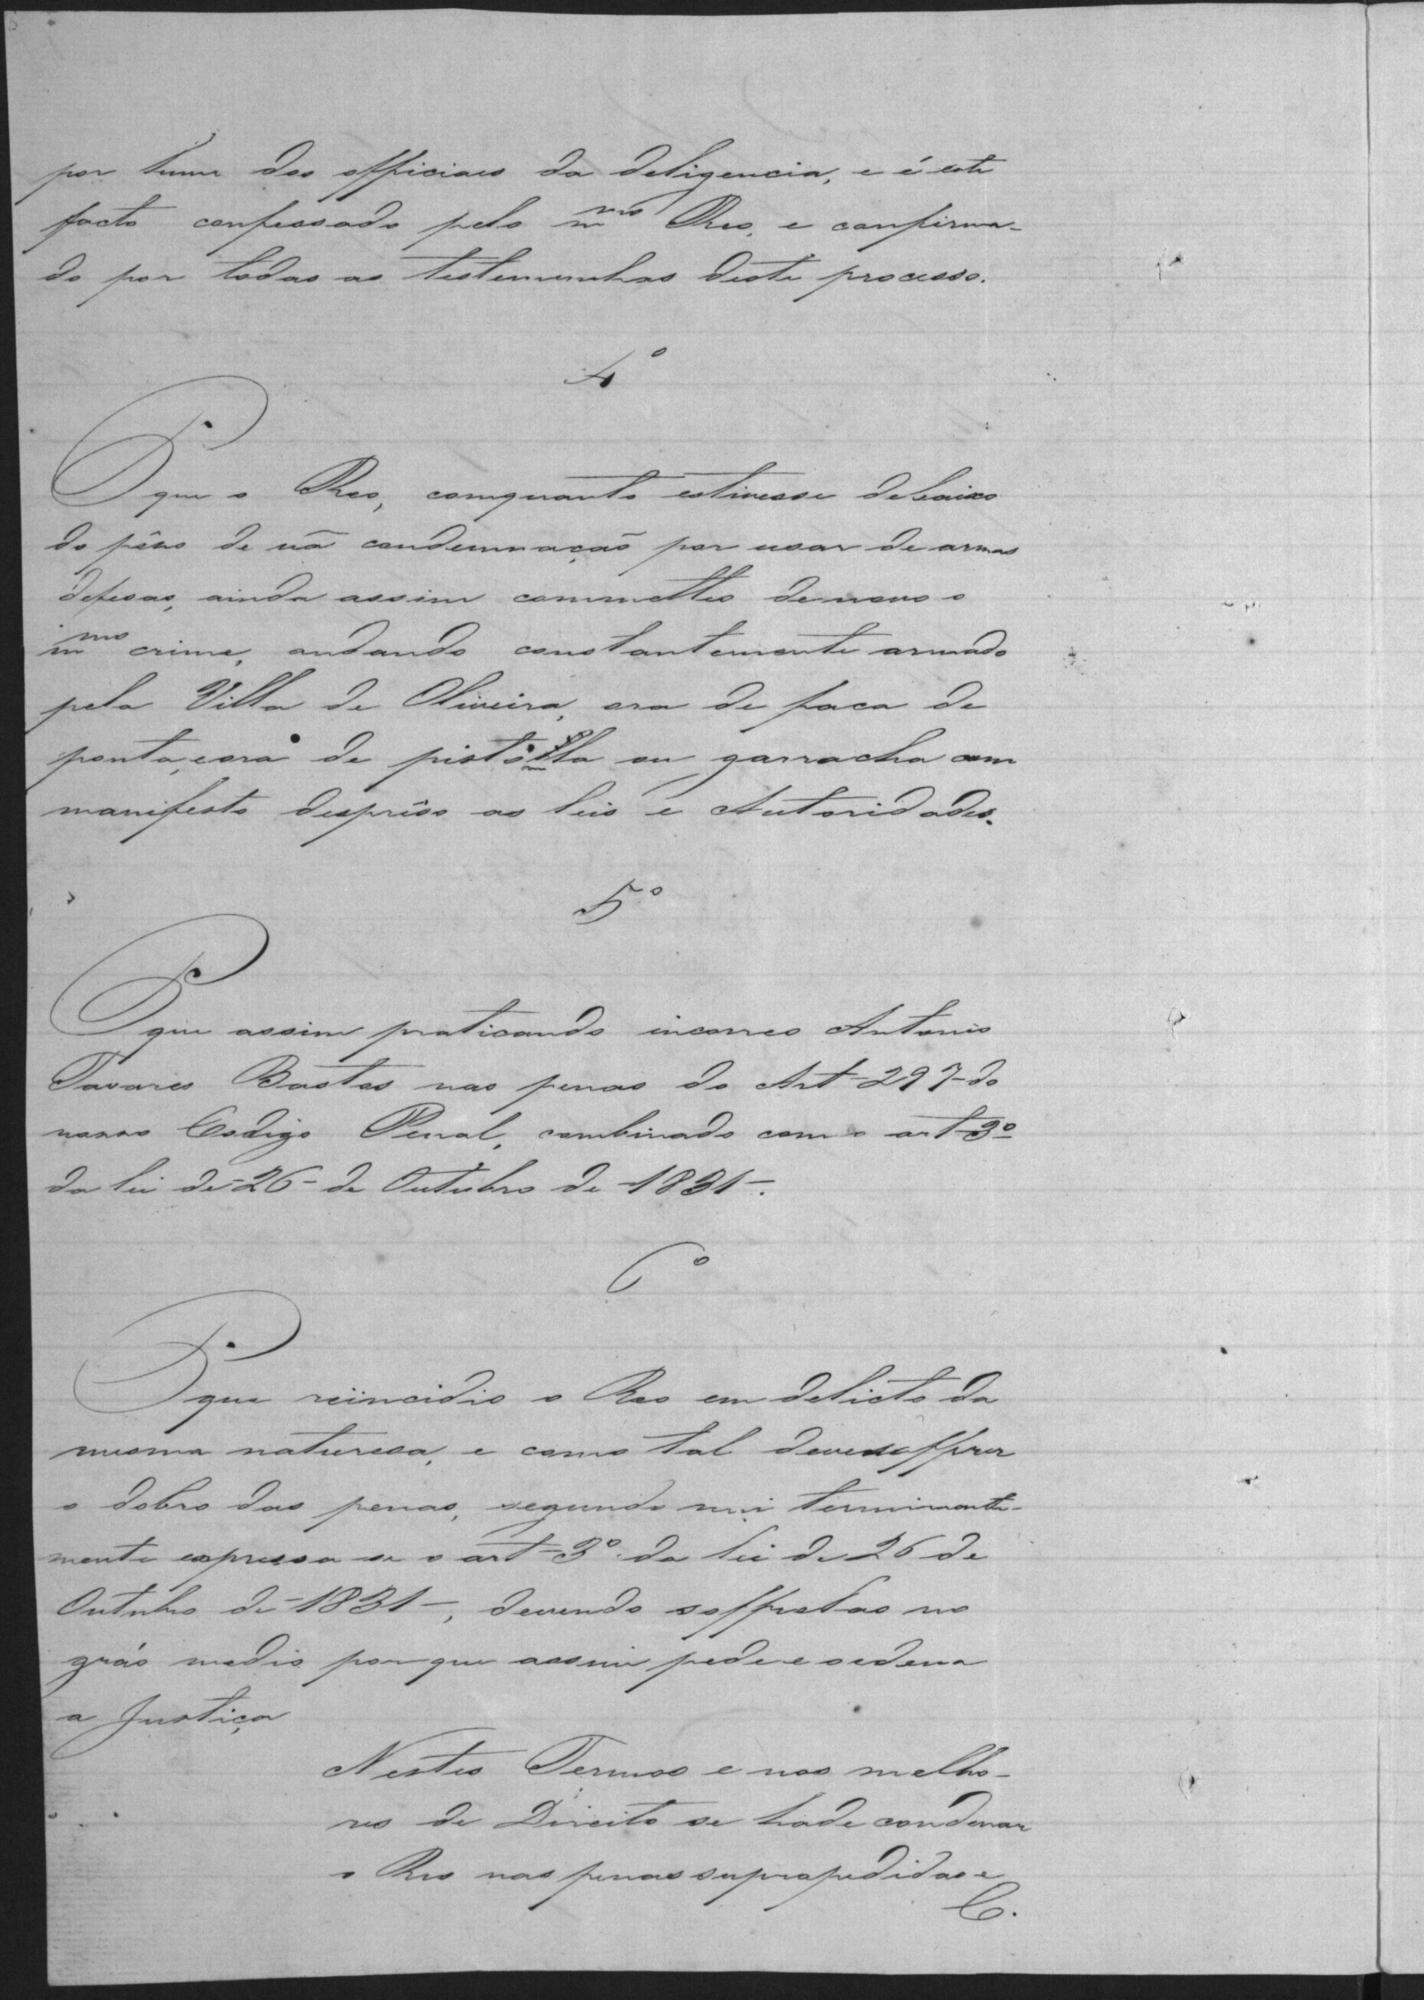 por hum dos officiaes da deligencia, e é este
facto confessado pelo mmo Reo, e confirma-
do por todas as testemunhas deste processo.
4º
P. que o Reo, comquanto estivesse debaixo
do pêso de uã condemnação por usar de armas
defesas, ainda assim commetteo de novo o
mmo crime, andando constantemente armado
pela Villa de Oliveira, ora de faca de
ponta, e ora de pistolla ou garrucha com
manifesto desprêso as leis e Autoridades.
5º
P. que assim praticando incorreo Antonio
Tavares Bastos nas penas do Art-297-do
nosso Codigo Penal, combinado com o art-3º
da lei de-26-de Outubro de-1831-.
6º
P. que reincidio o Reo em delicto da
mesma naturesa, e como tal deve soffrer
o dobro das penas, segundo mui terminante-
mente expressa-se o art-3º da lei de 26 de
Outubro de-1831-, devendo soffrelas no
gráo medio porque assim pede e ordena
a Justiça
Nestes Termos e nos melho-
res de Direito se hade condenar
o Reo nas penas supra pedidas e
C.